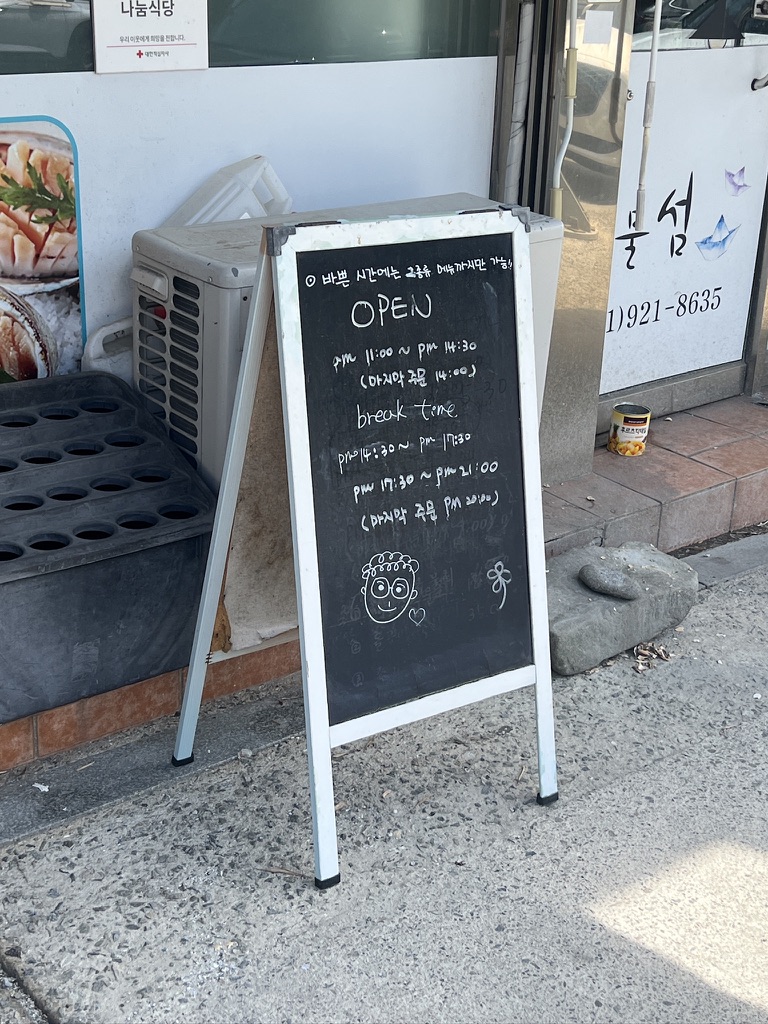 나눔식당
우리 이웃에게 희망을 전합니다.
대한적십자사
⊙ 바쁜 시간에는 2종류 메뉴까지만 가능!!
OPEN
am 11:00 ~ pm 14:30
(마지막 주문 14:00)
break time
pm 14:30 ~ pm 17:30
pm 17:30 ~ pm 21:00
(마지막 주문 PM 20:00)
물섬
1)921-8635
후르츠칵테일